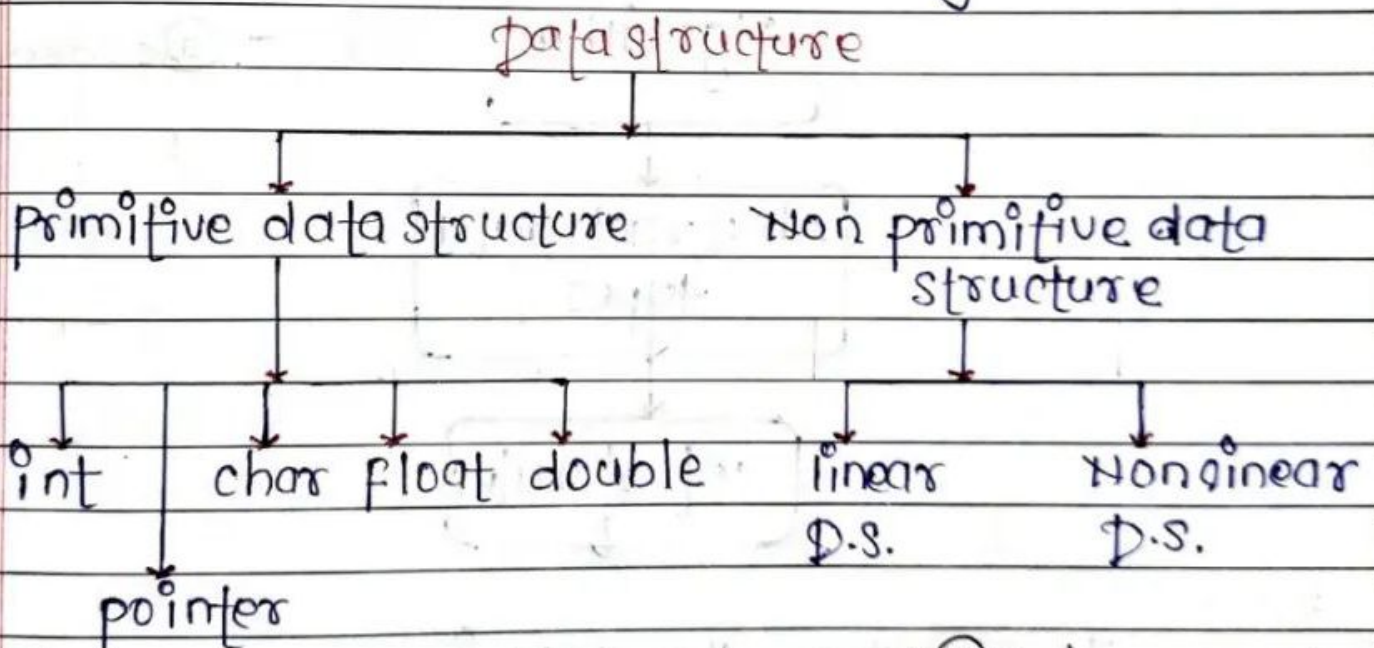 Data structure
primitive data structure Non primitive data
structure
int char float double linear Nonlinear
D.S. D.S.
pointer